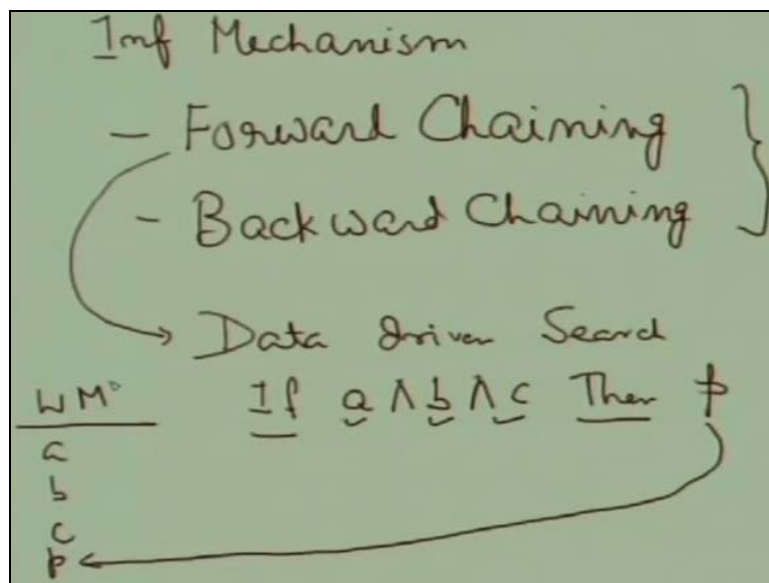 Inf Mechanism
- Forward Chaining
- Backward Chaining
Data driven Search
WM
If a ∧ b ∧ c Then p
a
b
c
p